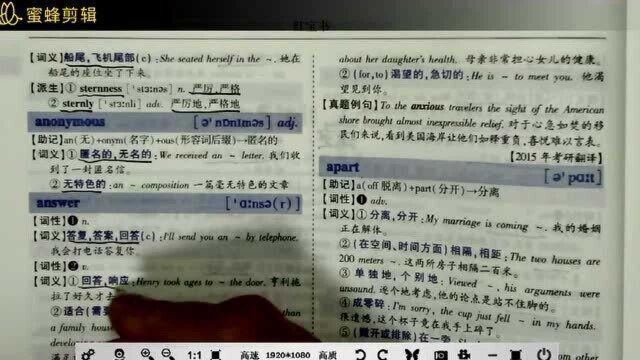 蜜蜂剪辑
红宝书
【词义】船尾,飞机尾部(c):She seated herself in the ~. 她在
船尾的座位坐了下来。
【派生】① sternness [ˈstɜːnəs] n. 严厉,严格
② sternly [ˈstɜːnli] adv. 严厉地,严格地
anonymous [əˈnɒnɪməs] adj.
【助记】an(无)+onym(名字)+ous(形容词后缀)→匿名的
【词义】① 匿名的,无名的:We received an ~ letter. 我们收
到了一封匿名信。
② 无特色的:an ~ composition 一篇毫无特色的文章
answer [ˈɑːnsə(r)]
【词性】❶ n.
【词义】答复,答案,回答(c):I'll send you an ~ by telephone.
我会打电话答复你。
【词性】❷ v.
【词义】① 回答,响应:Henry took ages to ~ the door. 亨利拖
拉了好久才去
② 适合(需
than a family
a house
develo
满足
about her daughter's health. 母亲非常担心女儿的健康。
② (for,to) 渴望的,急切的:He is ~ to meet you. 他渴
望见到你。
【真题例句】To the anxious travelers the sight of the American
shore brought almost inexpressible relief. 对于心急如焚的移
民们来说,看到美国海岸让他们如释重负,喜悦难以言表。
【2015 年考研翻译】
apart [əˈpɑːt]
【助记】a(off 脱离)+part(分开)→分离
【词性】❶ adv.
【词义】① 分离,分开:My marriage is coming ~. 我的婚姻
正在解体。
② (在空间、时间方面)相隔,相距:The two houses are
200 meters ~. 这两所房子相隔二百米。
③ 单独地,个别地:Viewed ~, his arguments were
unsound. 逐个地考虑,他的论点是站不住脚的。
④ 成零碎:I'm sorry, the cup just fell ~ in my hands.
很遗憾,这个杯子竟在我手上碎了。
⑤ (撇开或排除)在一旁
1:1 高速 1920*1080 高质